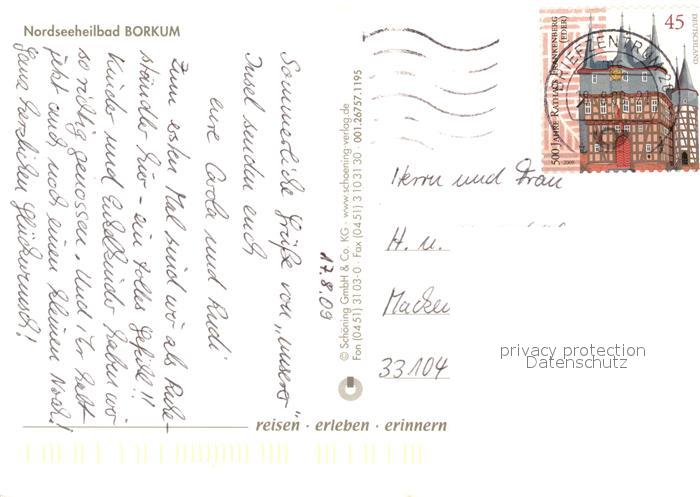 Nordseeheilbad BORKUM
17.8.09
Sommerliche Grüße von „unserer"
Insel senden euch
eure Carla und Rudi
Zum ersten Mal sind wir als Ruhe-
ständler hier – ein tolles Gefühl!!
Kinder und Enkelkinder haben wir
so richtig genossen. Und Ihr habt
jetzt auch noch einen kleinen Noah!
Ganz herzlichen Glückwunsch!
© Schöning GmbH & Co. KG · www.schoening-verlag.de
Fon (04 51) 31 03-0 · Fax (04 51) 3 10 31 30 · 001.26757.1195
45
DEUTSCHLAND
500 JAHRE RATHAUS FRANKENBERG
(EDER)
2009
BRIEFZENTRUM
Herrn und Frau
H. u.
33104
privacy protection
Datenschutz
reisen · erleben · erinnern